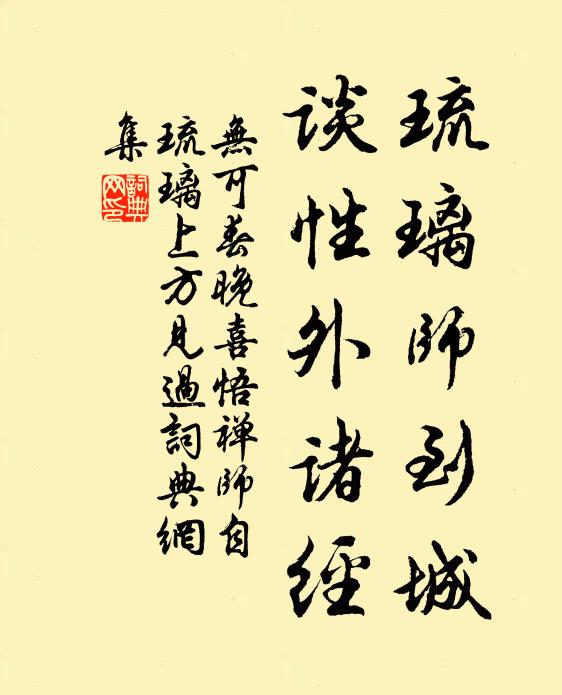 琉璃師到城
談性外諸經
無可春晚喜悟禅師自
琉璃上方見過詞典網
集
詞典
网印